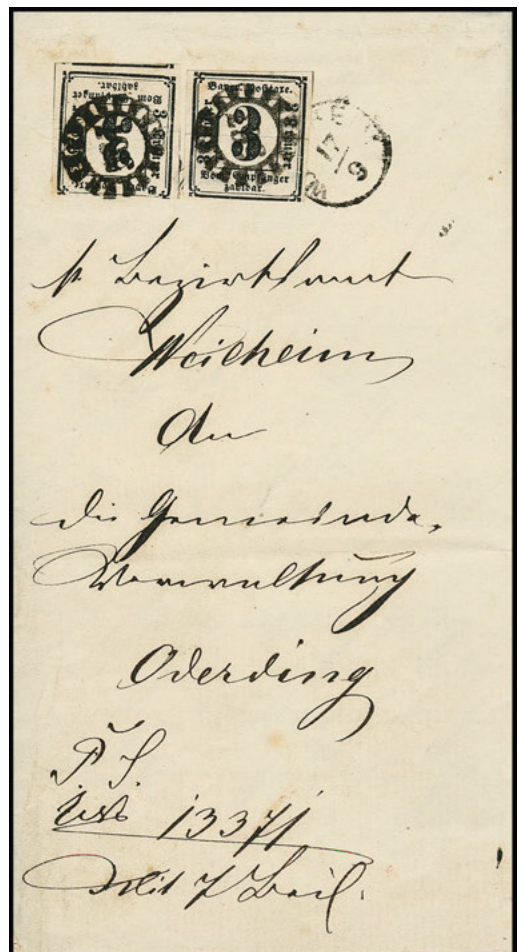 Bayer. Posttaxe.
3 Kreuzer
3
3 Kreuzer
Vom Empfänger
zahlbar.
Bayer. Posttaxe.
3 Kreuzer
3
Vom Empfänger
zahlbar.
17
9
Bezirksamt
Weilheim
An
die Gemeinde-
Verwaltung
Oderding
13371
Mit 7 Beil.